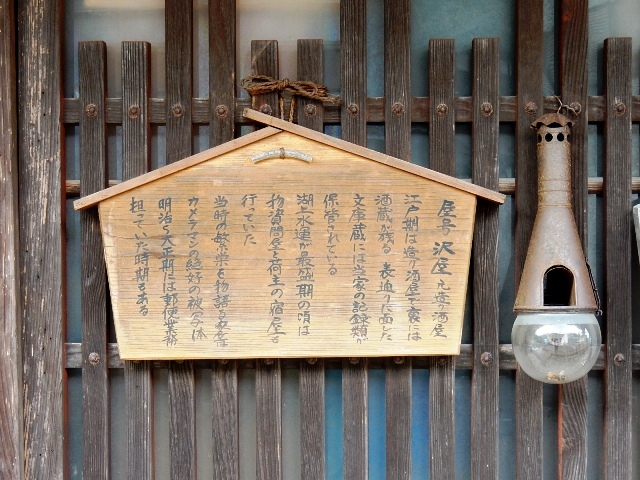 屋号 沢屋 元造り酒屋
江戸期は造り酒屋で裏には
酒蔵が残る 表通りに面した
文庫蔵には当家の記録類が
保管されている
湖上水運が最盛期の頃は
物資問屋と荷主の宿屋も
行っていた
当時の繁栄を物語る
カメラマンの絶好の被写体
明治〜大正期は郵便業務
担っていた時期もある